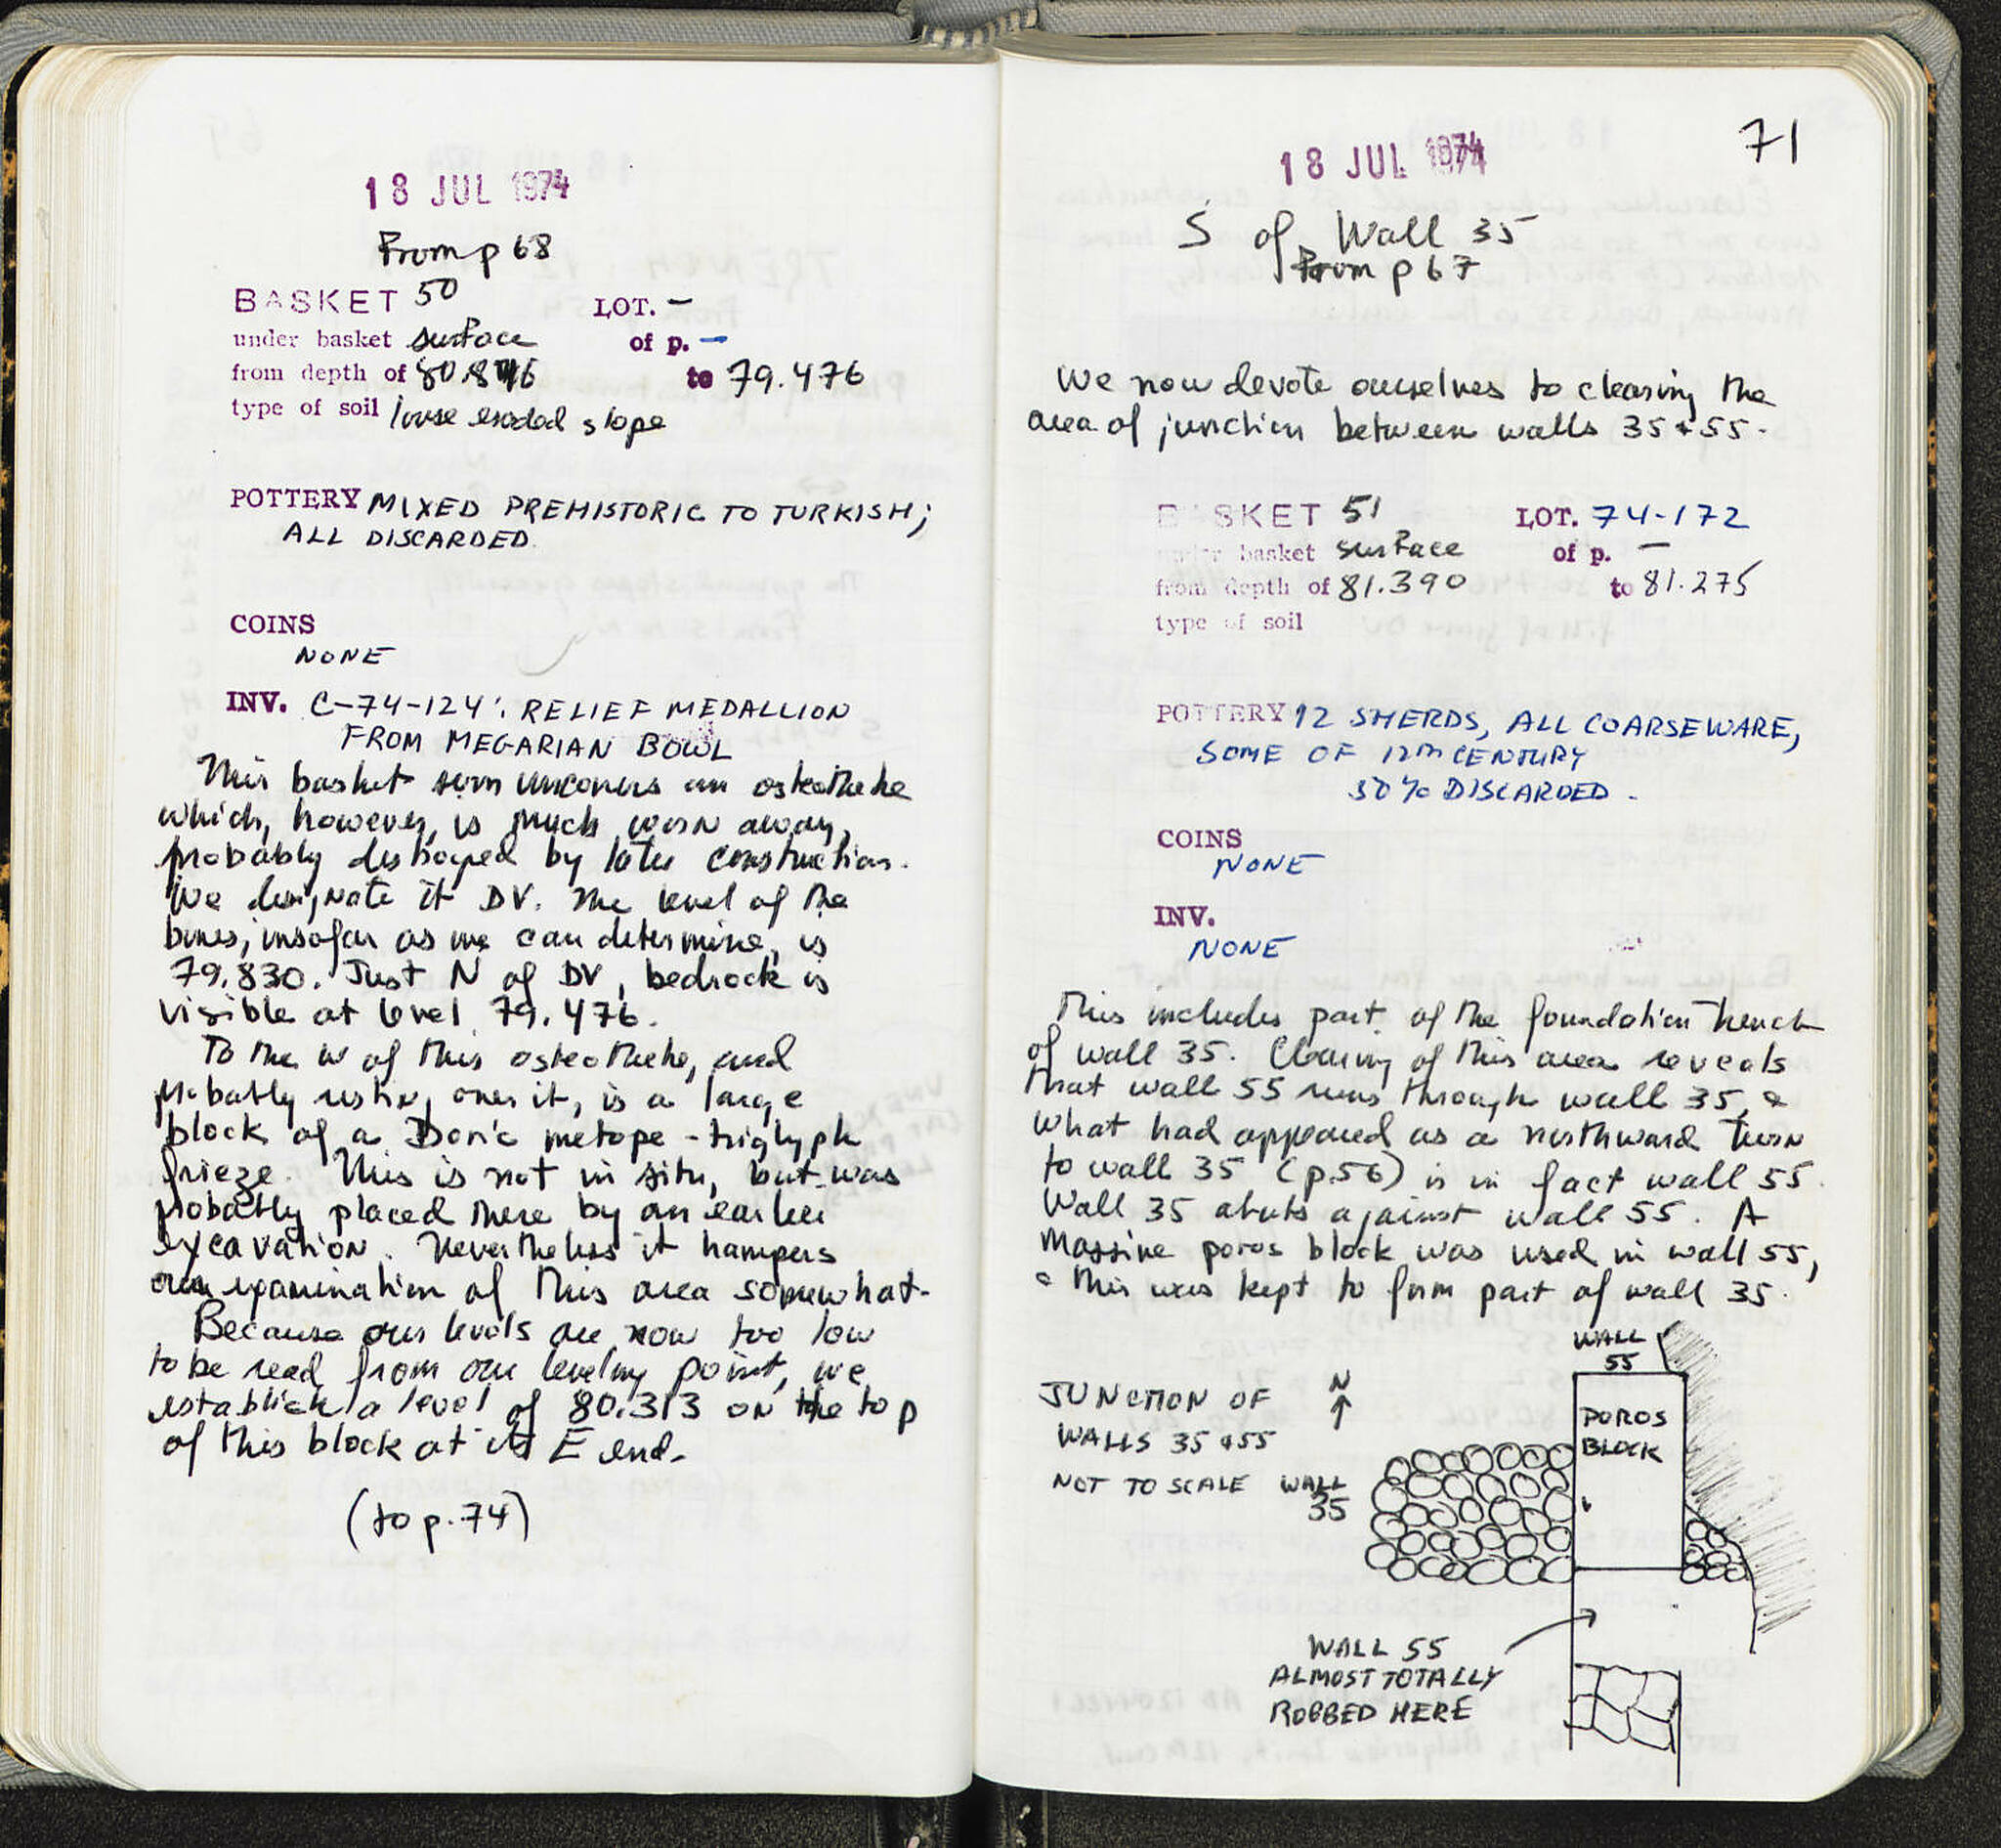 18 JUL 1974
From p 68
BASKET 50 LOT. –
under basket surface of p. –
from depth of to 79.476
type of soil loose eroded slope
POTTERY MIXED PREHISTORIC TO TURKISH;
ALL DISCARDED.
COINS
NONE
INV. C-74-124: RELIEF MEDALLION
FROM MEGARIAN BOWL
This basket soon uncovers an osteotheke
which, however, is much worn away,
probably destroyed by later construction.
We designate it DV. The level of the
bones, insofar as we can determine, is
79.830. Just N of DV, bedrock is
visible at level 79.476.
To the W of this osteotheke, and
probably resting over it, is a large
block of a Doric metope-triglyph
frieze. This is not in situ, but was
probably placed there by an earlier
excavation. Nevertheless it hampers
our examination of this area somewhat.
Because our levels are now too low
to be read from our leveling point, we
establish a level of 80.313 on the top
of this block at its E end.
(to p. 74)
71
18 JUL 1974
S of Wall 35
From p 67
We now devote ourselves to clearing the
area of junction between walls 35 & 55.
BASKET 51 LOT. 74-172
under basket surface of p. –
from depth of 81.390 to 81.275
type of soil
POTTERY 12 SHERDS, ALL COARSEWARE,
SOME OF 12TH CENTURY
50% DISCARDED.
COINS
NONE
INV.
NONE
This includes part of the foundation trench
of wall 35. Clearing of this area reveals
that wall 55 runs through wall 35, &
what had appeared as a northward turn
to wall 35 (p.56) is in fact wall 55.
Wall 35 abuts against wall 55. A
massive poros block was used in wall 55,
& this was kept to form part of wall 35.
WALL
55
JUNCTION OF N
WALLS 35 & 55
NOT TO SCALE WALL
35
POROS
BLOCK
WALL 55
ALMOST TOTALLY
ROBBED HERE